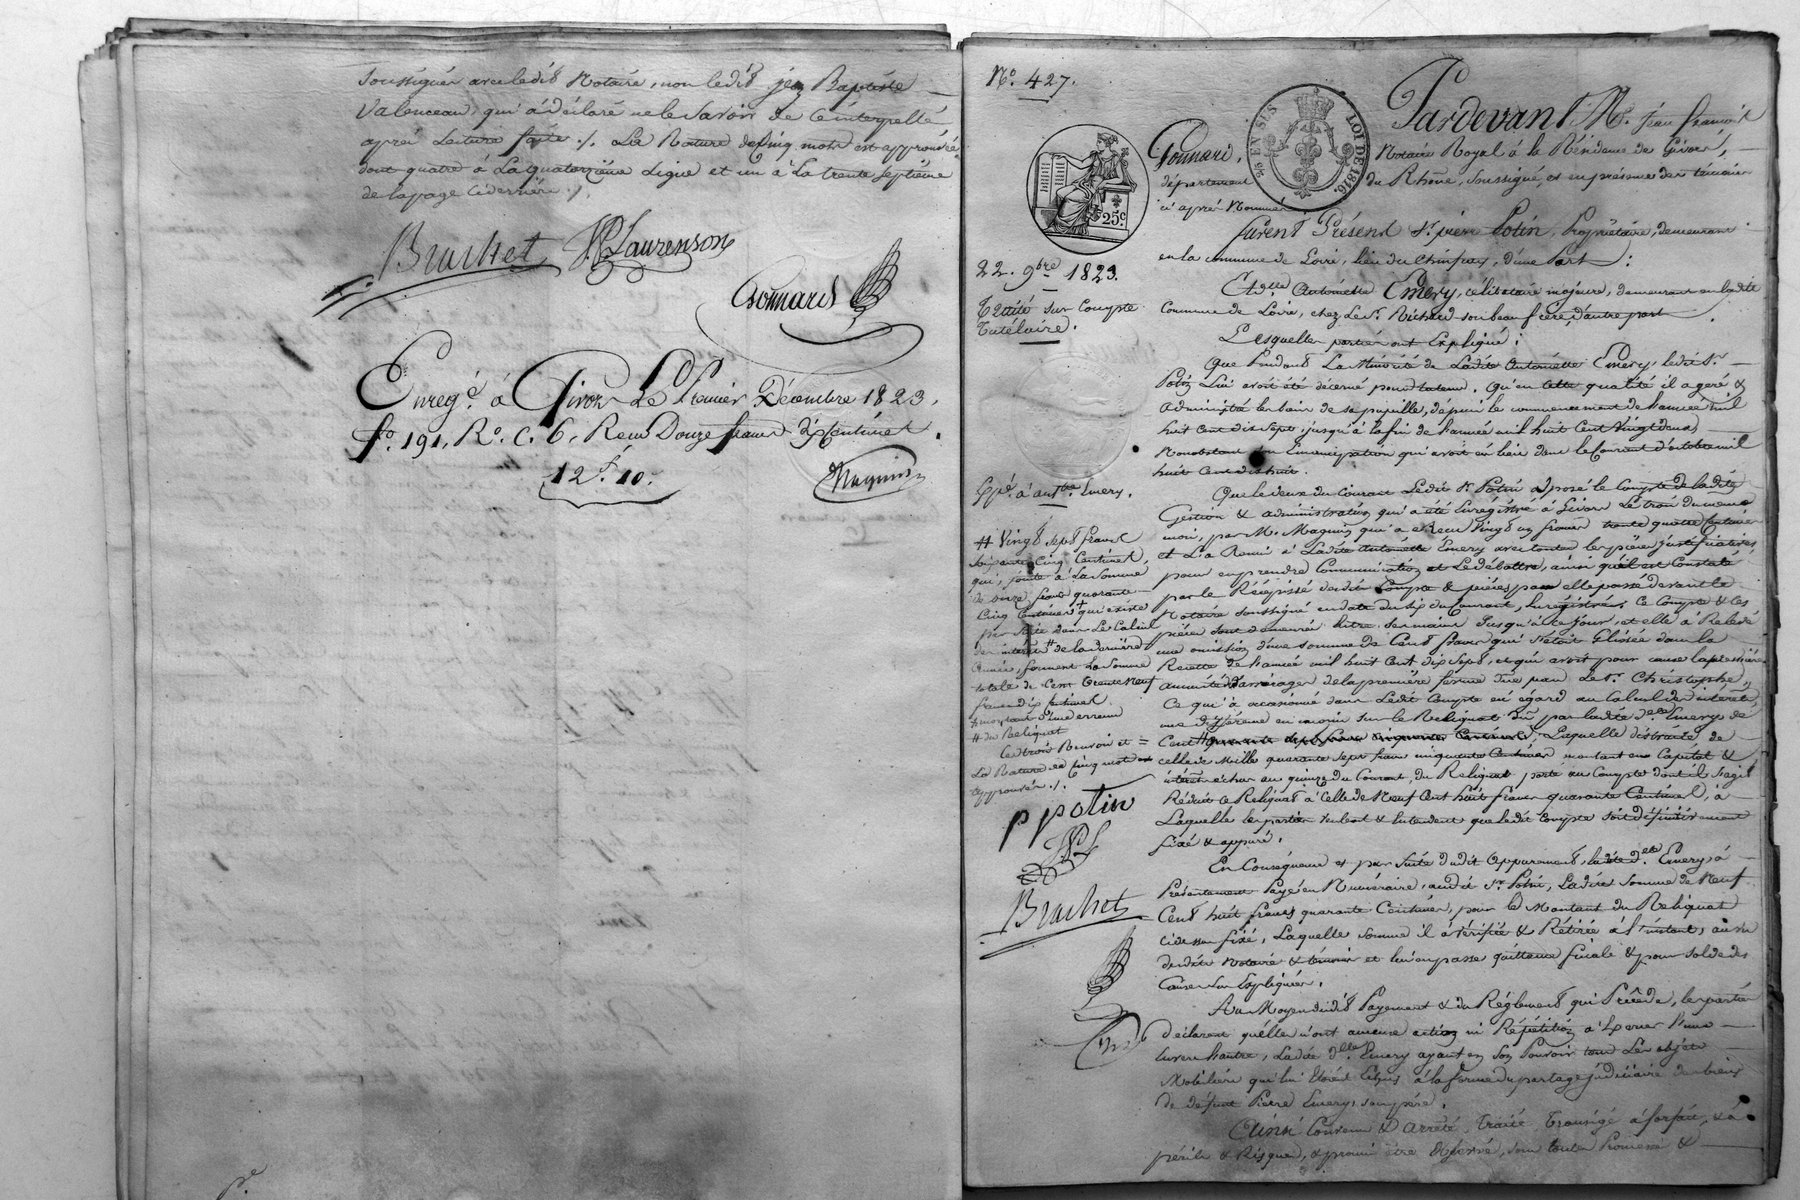 soussignés avec ledit Notaire, non ledit jean Baptiste
Valenceau, qui a déclaré ne le savoir de ce interpellé
après Lecture faite ./. La Rature de cinq mots est approuvée
dont quatre à La quatorzième Ligne et un à La trente septième
de la page ci derrière ./.
Brachet JP Laurenson
Gonnard
Enregé. à Givors Le Premier Décembre 1823.
fo. 191, Ro. C. 6, Recu Douze francs dix Centimes.
12 f. 10.
Magnin
No. 427.
Pardevant Me. jean françois
Gonnard, Notaire Royal à la Résidence de Givors,
ENSIS
LOI DE 1816.
25c.
département du Rhône, soussigné, et en présence des témoins
ci après Nommés
furent Présens Sr. pierre Potin, Propriétaire, demeurant
en la commune de Loire, lieu du Chinfray, d'une Part;
22. 9bre 1823.
Et dlle Antoinette Emery, célibataire majeure, demeurant en ladite
Traité sur Compte
Tutélaire.
Commune de Loire, chez le Sr. Richard son beau frère, d'autre part
Lesquelles parties ont Expliqué;
Que Pendant La Minorité de Ladite Antoinette Emery, ledit Sr.
Potin Lui avoit été décerné pour tuteur. Qu'en cette qualité il a géré &
administré les biens de sa pupille, depuis le commencement de l'année mil
huit Cent dix sept jusqu'à la fin de l'année mil huit Cent Vingt deux,
Nonobstant son Emancipation qui avoit eu lieu dans le Courant d'octobre mil
huit Cent dix huit.
Expé. à antte. Emery.
Que le deux du Courant Ledit Sr. Potin a posé le Compte de ladite
Gestion & administration qui a été Enregistré à Givors Le trois du même
mois, par Mr. Magnin qui a Recu Vingt un francs trente quatre Centimes
et L'a Remis à Ladite Antoinette Emery avec toutes les pièces justificatives
pour en prendre Communication et Le débattre, ainsi qu'il est Constaté
par le Récépissé dudit Compte & pièces par elle passé devant le
Notaire soussigné en date du six du Courant, Enregistré; Ce Compte & les
pièces sont demeurés Entre ses mains Jusqu'à Ce Jour, et elle a Relevé
une omission d'une somme de Cent francs qui s'étoit Glissée dans la
Recette de l'année mil huit Cent dix Sept, et qui avoit pour cause
annuité d'arrérages de la première ferme due par Le Sr. Christophe,
Ce qui a occasionné dans Ledit Compte eu égard au Calcul des intérêts,
une différence en moins sur le Reliquat Dû par ladite dlle Emery de
Cent quarante sept francs cinquante Centimes, Laquelle distraite de
celle de Mille quarante sept francs cinquante Centimes montant en Capital &
intérêts échus au quinze du Courant, du Reliquat porté au Compte dont il s'agit
Réduit Ce Reliquat à Celle de Neuf Cent huit francs quarante Centimes, à
Laquelle les parties veulent & Entendent que ledit Compte soit définitivement
fixé & appuré.
# Vingt sept francs
soixante Cinq Centimes,
qui, jointe à La Somme
de onze francs quarante
Cinq Centimes + qui existe
par suite dans Le Calcul
des intérêts # de la dernière
année, forment La Somme
totale de Cent trente Neuf
francs dix Centimes.
+ montant d'une erreur
# du Reliquat
Les trois Renvois et
La Rature de Cinq mots
approuvés ./.
p potin
JPL
Brachet
En Conséquence et par suite dudit Appurement, ladite dlle. Emery, a
Présentement Payé en Numéraire, audit Sr. Potin, Ladite Somme de Neuf
Cent huit francs quarante Centimes, pour le Montant du Reliquat
ci dessus fixé, Laquelle somme il a Vérifiée & Retirée à l'instant, au vu
desdits Notaire & témoins et lui en passe quittance finale & pour solde des
Causes sus Expliquées.
Au Moyen dudit Payement & du Règlement qui Précède, les parties
déclarent qu'elles n'ont aucune action ni Répétition à Exercer l'une
Envers l'autre, Ladite dlle. Emery ayant en Son Pouvoir tous Les objets
Mobiliers qui lui étoient Echus à la forme du partage judiciaire des biens
de défunt Pierre Emery, son père.
Ainsi Convenu & Arrêté, Traité Transigé à forfait, & à
périls & Risques, & promis être observé, sous toutes Promesses &